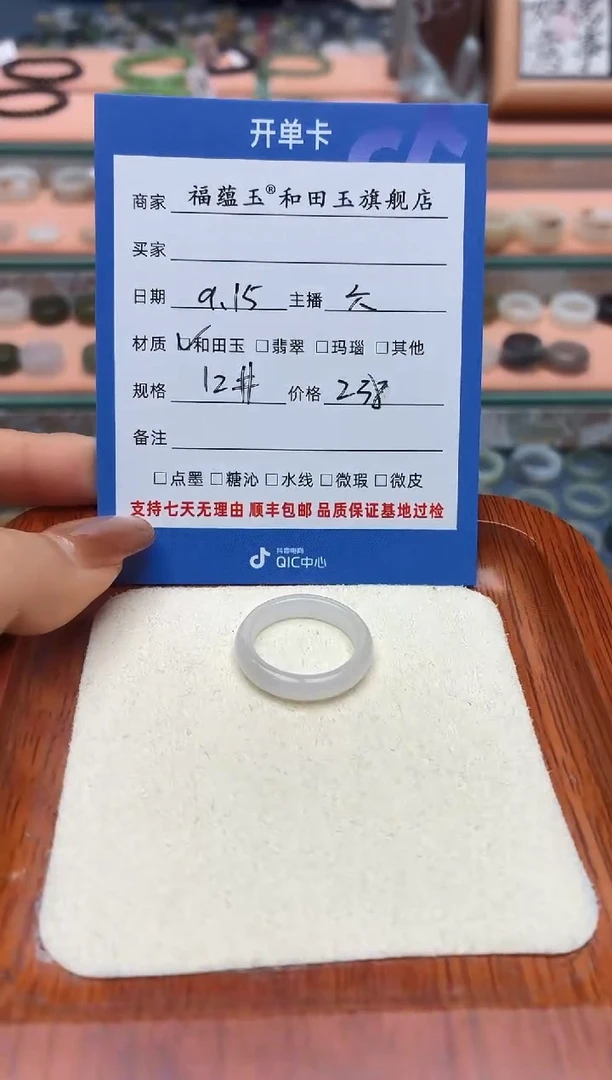 开单卡
商家 福蕴玉®和田玉旗舰店
买家
日期 9.15 主播 六
材质 ☑和田玉 □翡翠 □玛瑙 □其他
规格 12# 价格
备注
□点墨 □糖沁 □水线 □微瑕 □微皮
支持七天无理由 顺丰包邮 品质保证基地过检
抖音电商
QIC中心